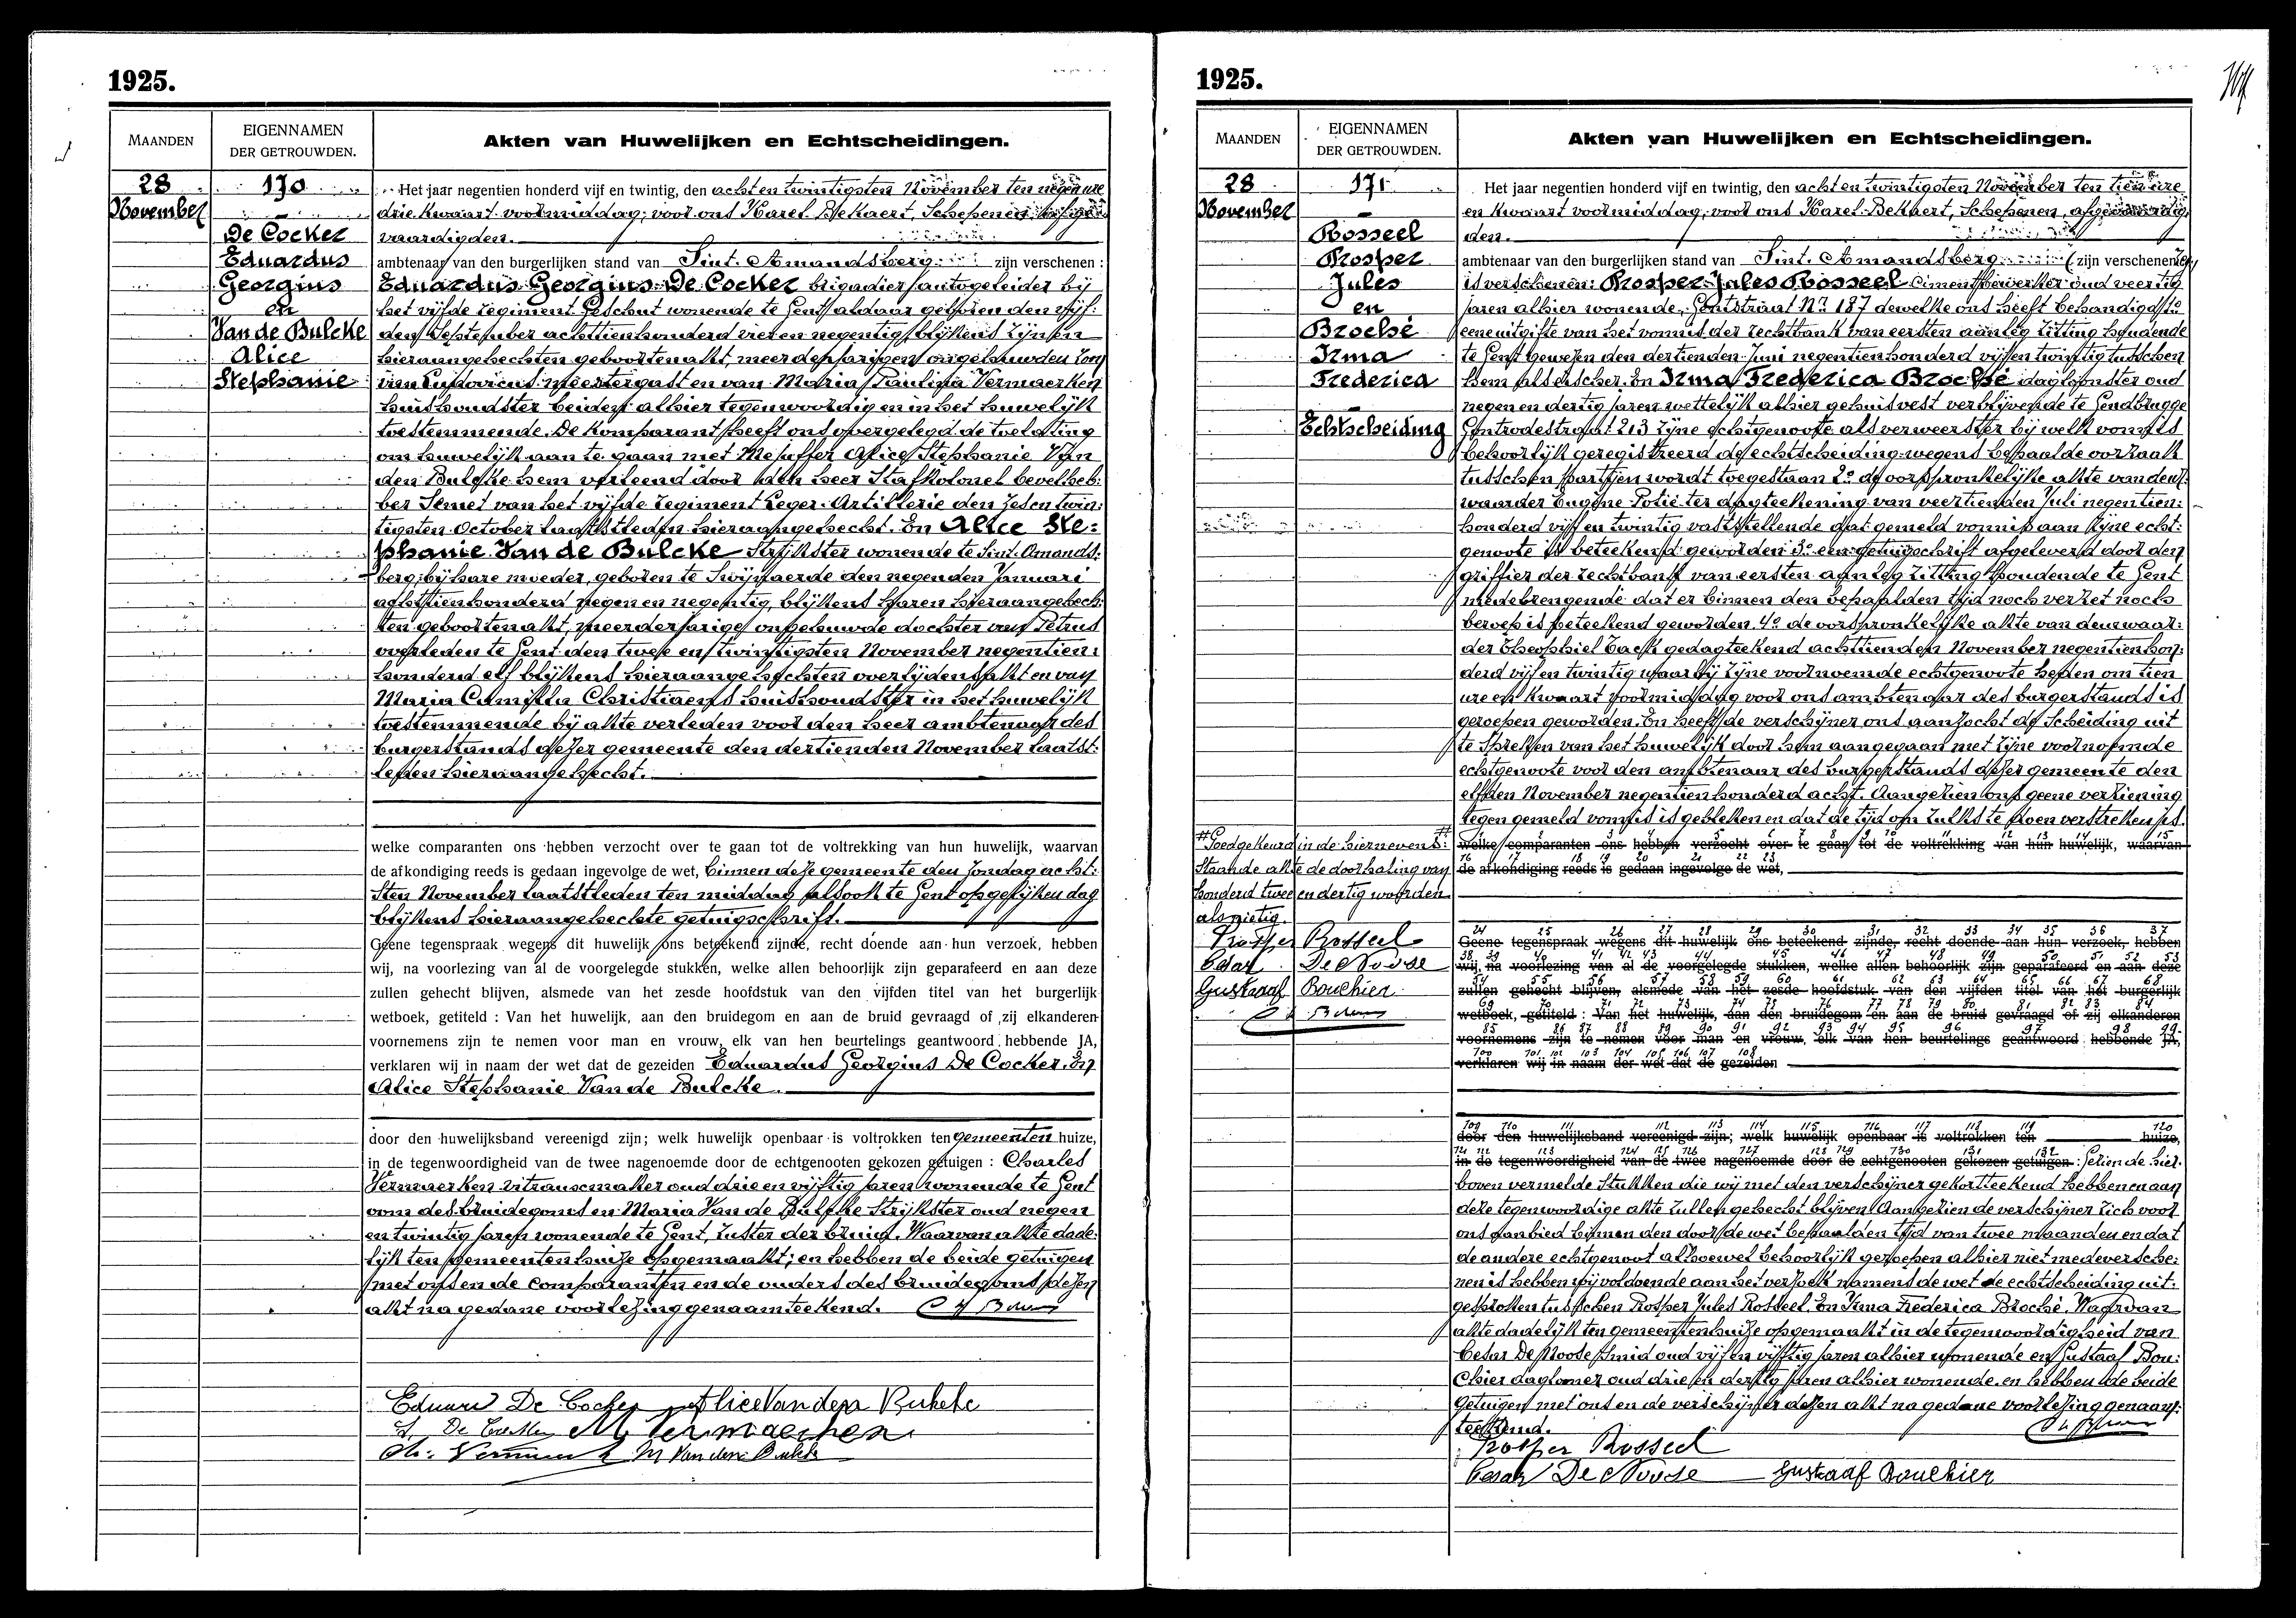 1925.
MAANDEN
EIGENNAMEN
DER GETROUWDEN.
Akten van Huwelijken en Echtscheidingen.
28
November
170
De Cocker
Eduardus
Georgius
en
Van de Bulcke
Alice
Stephanie
Het jaar negentien honderd vijf en twintig, den acht en twintigsten November ten negen ure
drie kwaart voormiddag; voor ons Karel Bekaert, Schepenen, afge-
vaardigden.
ambtenaar van den burgerlijken stand van Sint-Amandsberg zijn verschenen:
Eduardus Georgius De Cocker brigadier autogeleider bij
het vijfde regiment geschut wonende te Gent aldaar geboren den vijf:
den September achttienhonderd vier en negentig, blijkens zijnen
hieraangehechten geboortenakt, meerderjarigen ongehuwden zoon
van Ludovicus meestergast en van Maria Paulina Vermaerken
huishoudster beiden alhier tegenwoordig en in het huwelijk
toestemmende. De komparant heeft ons overgelegd de toelating
om huwelijk aan te gaan met Mejuffer Alice Stephanie Van
den Bulcke hem verleend door den heer Stafkolonel bevelheb:
ber Semet van het vijfde regiment Leger-Artillerie den zes en twin:
tigsten October laatstleden hieraangehecht. En Alice Ste:
phanie Van de Bulcke Strijkster wonende te Sint-Amands:
berg, bij hare moeder, geboren te Swijnaerde den negenden Januari
achttienhonderd negen en negentig, blijkens haren hieraangehech:
ten geboortenakt, meerderjarige ongehuwde dochter van Petrus
overleden te Gent den twee en twintigsten November negentien:
honderd elf blijkens hieraangehechten overlijdensakt en van
Maria Camilla Christiaens huishoudster in het huwelijk
toestemmende bij akte verleden voor den heer ambtenaar des
burgerstands dezer gemeente den dertienden November laatst:
leden hieraangehecht.
welke comparanten ons hebben verzocht over te gaan tot de voltrekking van hun huwelijk, waarvan
de afkondiging reeds is gedaan ingevolge de wet, binnen deze gemeente den Zondag acht:
sten November laatstleden ten middag alsook te Gent op gelijken dag
blijkens hieraangehechte getuigschrift.
Geene tegenspraak wegens dit huwelijk ons beteekend zijnde, recht doende aan hun verzoek, hebben
wij, na voorlezing van al de voorgelegde stukken, welke allen behoorlijk zijn geparafeerd en aan deze
zullen gehecht blijven, alsmede van het zesde hoofdstuk van den vijfden titel van het burgerlijk
wetboek, getiteld : Van het huwelijk, aan den bruidegom en aan de bruid gevraagd of zij elkanderen
voornemens zijn te nemen voor man en vrouw, elk van hen beurtelings geantwoord hebbende JA,
verklaren wij in naam der wet dat de gezeiden Eduardus Georgius De Cocker. En
Alice Stephanie Van de Bulcke.
door den huwelijksband vereenigd zijn; welk huwelijk openbaar is voltrokken ten gemeenten huize,
in de tegenwoordigheid van de twee nagenoemde door de echtgenooten gekozen getuigen : Charles
Vermaerken vitrausemaker oud drie en vijftig jaren wonende te Gent
oom des bruidegoms en Maria Van de Bulcke Strijkster oud negen
en twintig jaren wonende te Gent, zuster der bruid. Waarvan akte dade:
lijk ten gemeentenhuize opgemaakt; en hebben de beide getuigen
met ons en de comparanten en de ouders des bruidegoms dezen
akt na gedane voorlezing genaamteekend.
Eduard De Cocker Alice Van den Bulcke
L. De Cocker M Vermaerken
Ch. Vermaerken M Van den Bulcke
1925.
MAANDEN
EIGENNAMEN
DER GETROUWDEN.
Akten van Huwelijken en Echtscheidingen.
28
November
171
Rosseel
Prosper
Jules
en
Broché
Irma
Frederica
Echtscheiding
Het jaar negentien honderd vijf en twintig, den acht en twintigsten November ten tien ure
en kwaart voormiddag, voor ons Karel Bekaert, Schepenen, afgevaardig:
den.
ambtenaar van den burgerlijken stand van Sint-Amandsberg (zijn verschenen:)
is verschenen: Prosper Jules Rosseel Cimentbewerker oud veertig
jaren alhier wonende, Gentstraat Nr. 187 dewelke ons heeft behandigd 1º
eene uitgifte van het vonnis der rechtbank van eersten aanleg zitting houdende
te Gent gewezen den dertienden Juni negentienhonderd vijf en twintig tusschen
hem als eischer. En Irma Frederica Broché dagloonster oud
negen en dertig jaren wettelijk alhier gehuisvest verblijvende te Gendbrugge
Gontrodestraat 213 zijne echtgenoote als verweerster bij welk vonnis
behoorlijk geregistreerd de echtscheiding wegens bepaalde oorzaak
tusschen partijen wordt toegestaan 2º de oorspronkelijke akte van deur:
waarder Eugène Potié ter dagteekening van veertienden Juli negentien:
honderd vijf en twintig vaststellende dat gemeld vonnis aan zijne echt:
genoote is beteekend geworden 3º een getuigschrift afgeleverd door den
griffier der rechtbank van eersten aanleg zitting houdende te Gent
medebrengende dat er binnen den bepaalden tijd noch verzet noch
beroep is beteekend geworden. 4º de oorspronkelijke akte van deurwaar:
der Theophiel Cack gedagteekend achttienden November negentienhon:
derd vijf en twintig waarbij zijne voornoemde echtgenoote heden om tien
ure en kwaart voormiddag voor ons ambtenaar des burgerstands is
geroepen geworden. En heeft de verschijner ons aanzocht de Scheiding uit
te spreken van het huwelijk door hem aangegaan met zijne voornoemde
echtgenoote voor den ambtenaar des burgerstands dezer gemeente den
elfden November negentienhonderd acht. Aangezien ons geene verziening
tegen gemeld vonnis is gebleken en dat de tijd om zulks te doen verstreken is.
# Goedgekeurd in de hiernevens:
staande akte de doorhaling van
honderd twee en dertig woorden
als nietig.
Prosper Rosseel
Cesar De Noose
Gustaaf Bouchier
welke comparanten ons hebben verzocht over te gaan tot de voltrekking van hun huwelijk, waarvan
de afkondiging reeds is gedaan ingevolge de wet,
Geene tegenspraak wegens dit huwelijk ons beteekend zijnde, recht doende aan hun verzoek, hebben
wij, na voorlezing van al de voorgelegde stukken, welke allen behoorlijk zijn geparafeerd en aan deze
zullen gehecht blijven, alsmede van het zesde hoofdstuk van den vijfden titel van het burgerlijk
wetboek, getiteld : Van het huwelijk, aan den bruidegom en aan de bruid gevraagd of zij elkanderen
voornemens zijn te nemen voor man en vrouw, elk van hen beurtelings geantwoord hebbende JA,
verklaren wij in naam der wet dat de gezeiden
door den huwelijksband vereenigd zijn; welk huwelijk openbaar is voltrokken ten huize,
in de tegenwoordigheid van de twee nagenoemde door de echtgenooten gekozen getuigen : Gezien de hier:
boven vermelde stukken die wij met den verschijner gekortteekend hebben en aan
deze tegenwoordige akte zullen gehecht blijven. Aangezien de verschijner zich voor
ons aanbied binnen den door de wet bepaalden tijd van twee maanden en dat
de andere echtgenoot alhoewel behoorlijk geroepen alhier niet medeversche:
nen is hebben wij voldoende aan het verzoek namens de wet de echtscheiding uit:
gesproken tusschen Prosper Jules Rosseel. En Irma Frederica Broché. Waarvan
akte dadelijk ten gemeentenhuize opgemaakt in de tegenwoordigheid van
Cesar De Noose smid oud vijf en vijftig jaren alhier wonende en Gustaaf Bou:
chier daglooner oud drie en dertig jaren alhier wonende. en hebben de beide
getuigen met ons en de verschijner dezen akt na gedane voorlezing genaam:
teekend.
Prosper Rosseel
Cesar De Noose Gustaaf Bouchier